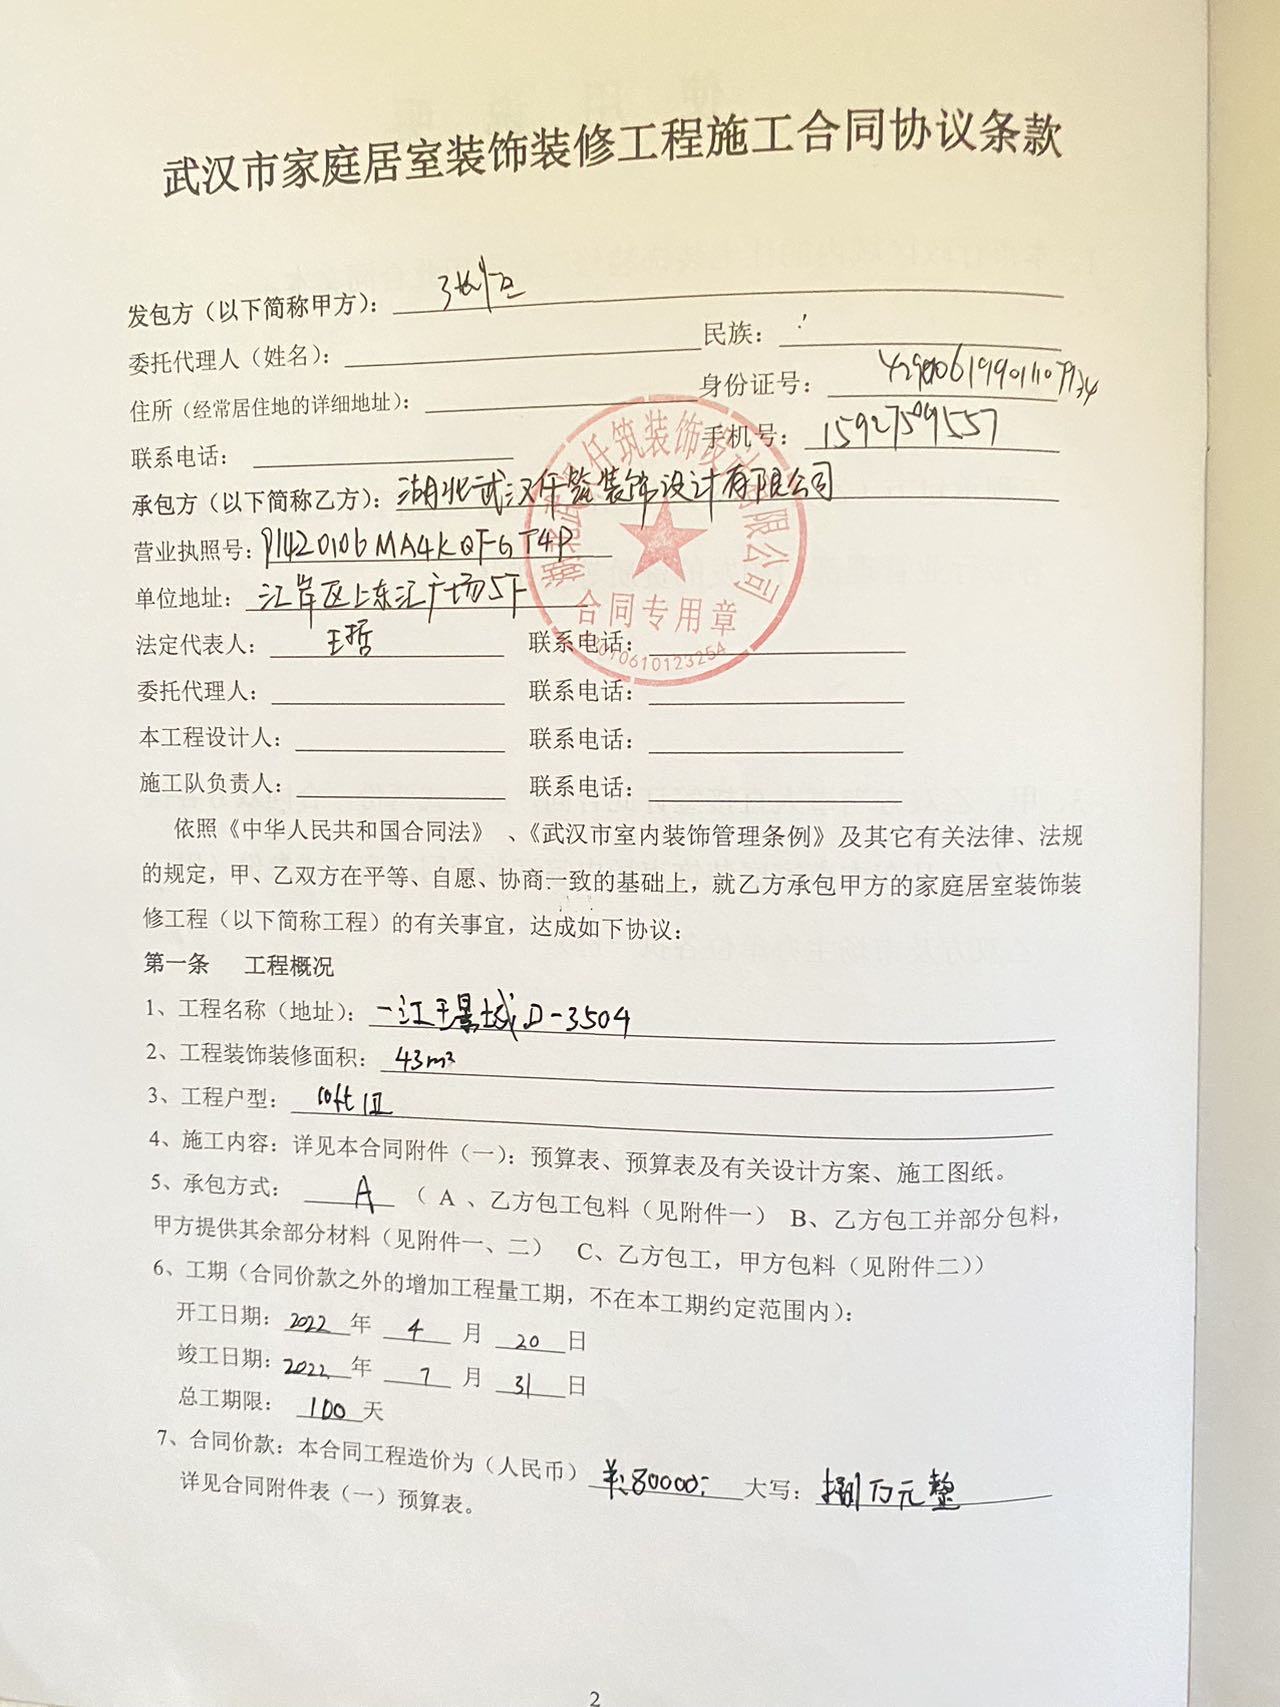 武汉市家庭居室装饰装修工程施工合同协议条款
发包方（以下简称甲方）：
委托代理人（姓名）： 民族：
住所（经常居住地的详细地址）： 身份证号：
联系电话： 手机号：15927509557
承包方（以下简称乙方）：湖北武汉仟筑装饰设计有限公司
营业执照号：91420106MA4KQFGT4P
单位地址：江岸区上东汇广场5F
法定代表人：王哲 联系电话：
委托代理人： 联系电话：
本工程设计人： 联系电话：
施工队负责人： 联系电话：
湖北武汉仟筑装饰设计有限公司
合同专用章
依照《中华人民共和国合同法》、《武汉市室内装饰管理条例》及其它有关法律、法规
的规定，甲、乙双方在平等、自愿、协商一致的基础上，就乙方承包甲方的家庭居室装饰装
修工程（以下简称工程）的有关事宜，达成如下协议：
第一条 工程概况
1、工程名称（地址）：一江璟城D-3504
2、工程装饰装修面积：43m²
3、工程户型：loft
4、施工内容：详见本合同附件（一）：预算表、预算表及有关设计方案、施工图纸。
5、承包方式： A （ A 、乙方包工包料（见附件一） B、乙方包工并部分包料，
甲方提供其余部分材料（见附件一、二） C、乙方包工，甲方包料（见附件二））
6、工期（合同价款之外的增加工程量工期，不在本工期约定范围内）：
开工日期：2022年 4 月 20 日
竣工日期：2022年 7 月 31 日
总工期限： 100 天
7、合同价款：本合同工程造价为（人民币）¥:80000: 大写：捌万元整
详见合同附件表（一）预算表。
2